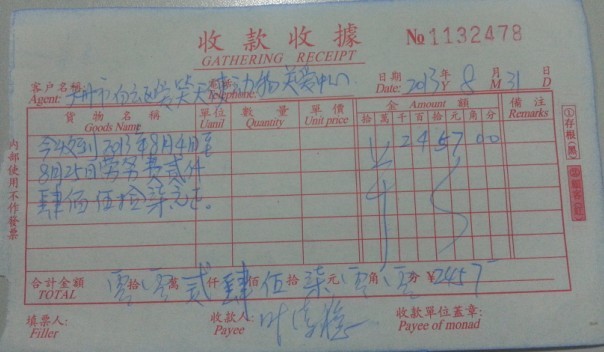 收款收據
GATHERING RECEIPT
No 1132478
客户名稱 Agent: 廣州市白云区 天 动物关爱中心 Telephone:
日期 Date: 2013 年 Y 8 月 M 31 日 D
貨物名稱 單位 數量 單價 金 Amount 額 備注
Goods Name Uanil Quantity Unit price 拾 萬 千 百 拾 元 角 分 Remarks
今收到2013年8月4日至 2 4 5 7 0 0
8月25日劳务费贰仟
肆佰伍拾柒元正。
合計金額 TOTAL 零 拾 零 萬 贰 仟 肆 佰 伍 拾 柒 元 零 角 零 分 ¥2457
填票人: 收款人: 叶 收款單位蓋章:
Filler Payee Payee of monad
内部使用不作發票
①存根(黑)
②顧客(紅)